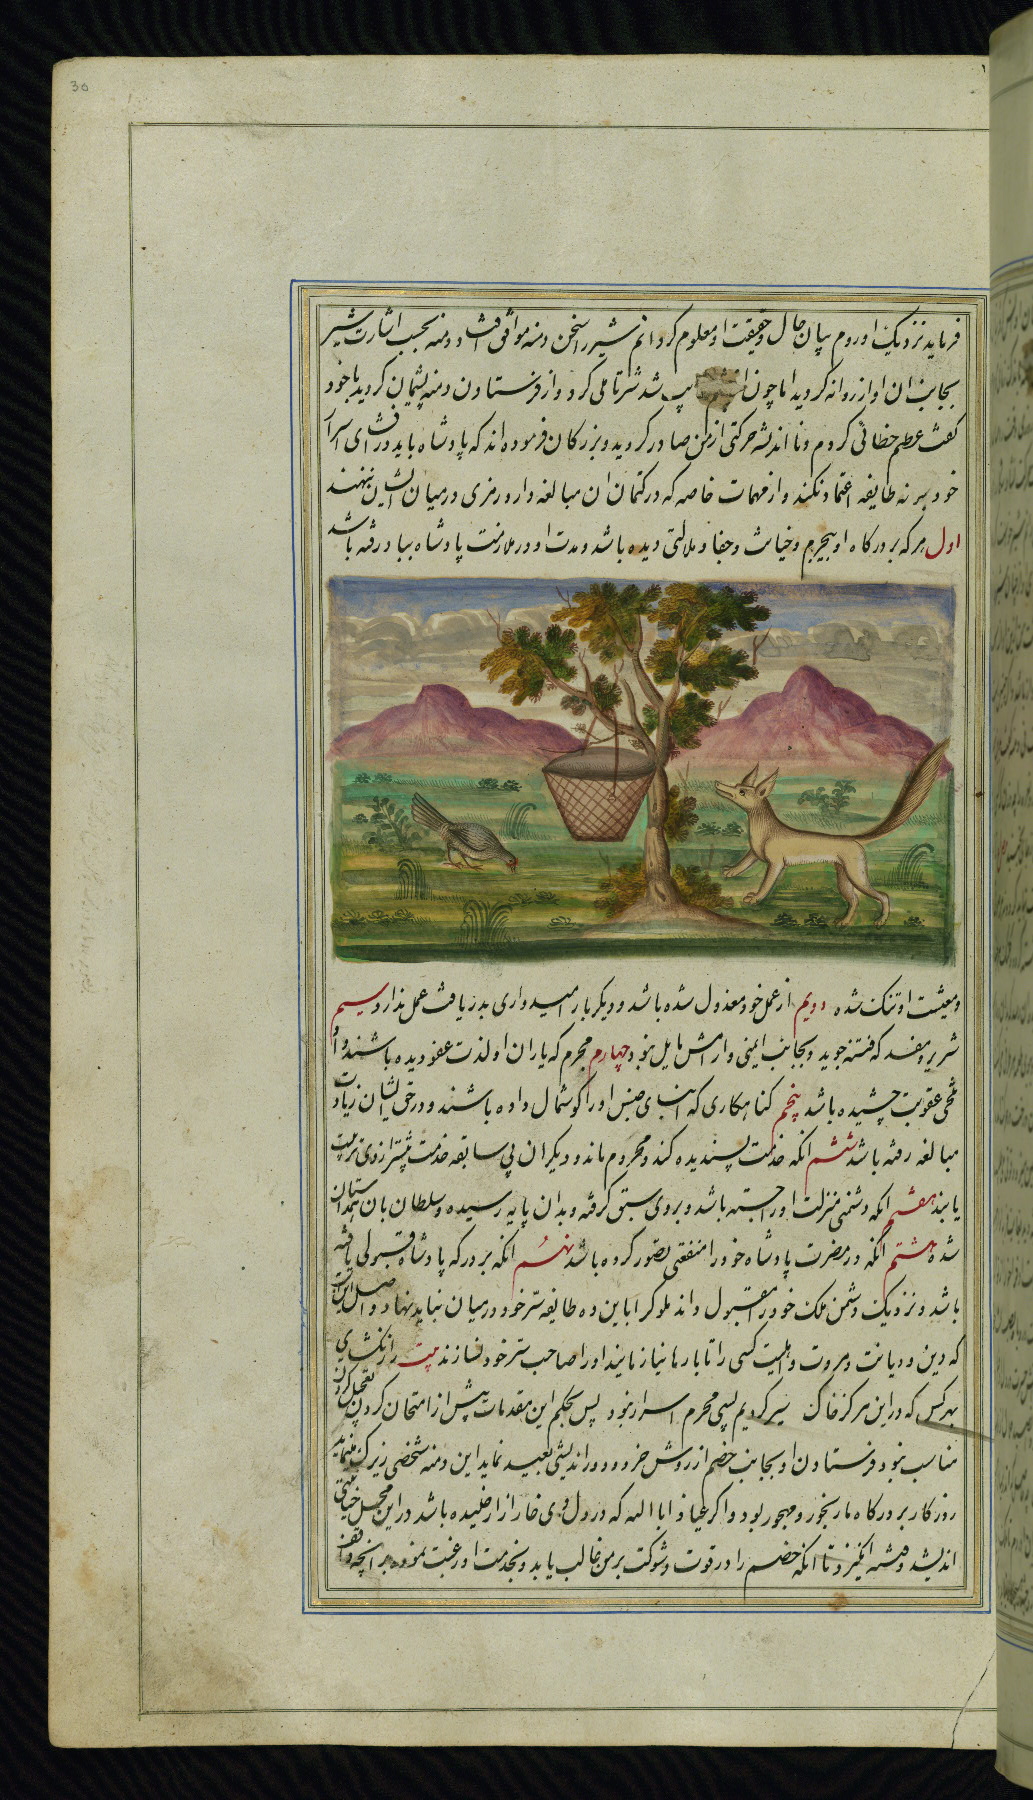 30
فرماید نزدیک او روم بیان حال و حقیقت او معلوم کردانم شیر را سخن دمنه موافق افتاد و دمنه بحسب اشارت شیر
بجانب ان اواز روانه کردید اما چون از چشم غایب شد شیر تاملی کرد و از فرستادن دمنه پشیمان کردید با خود
کفت عظیم خطائی کردم و نا اندیشه حرکتی از من صادر کردید و بزرکان فرموده اند که پادشاه باید در افشای اسرار
خود بر نه طایفه اعتماد نکند و از مهمات خاصه که در کتمان ان مبالغه دارد رمزی در میان ایشان ننهند
اول هر که بر درکاه او بیجرم و خیانت و جفا و ملالتی دیده باشد و مدت او در ملازمت پادشاه بباد رفته باشد
و معیشت او تنک شده دویم از عمل خود معذول شده باشد و دیکر بار امیدواری بدریافت عمل ندارد سیم
شریر و مفسد که فتنه جوید و بجانب ایمنی و ارامش مایل نبود چهارم مجرم که یاران او لذت عفو دیده باشند و او
تلخی عقوبت چشیده باشد پنجم کناهکاری که ابنای جنس او را کوشمال داده باشند و در حق ایشان زیادت
مبالغه رفته باشد ششم انکه خدمت پسندیده کند و محروم ماند و دیکران بی سابقه خدمت بیشتر از وی تربیت
یابند هفتم انکه دشمنی منزلت او را جسته باشد و بر وی سبق کرفته و بدان پایه رسیده و سلطان بان همداستان
شده هشتم انکه در مضرت پادشاه خود را منفعتی تصور کرده باشد نهم انکه بر درکه پادشاه قبولی یافته
باشد و نزدیک دشمن ملک خود را مقبول داند ملوکرا با این ده طائفه سر خود در میان نباید نهاد و اصل این است
که دین و دیانت و مروت و اهلیت کسی را تا بارها نیازمایند او را صاحب سر خود نسازند بیت راز نکشای
بهر کس که در این مرکز خاک سیر کردیم بسی محرم اسرار نبود پس بحکم این مقدمات پیش از امتحان کردن تعجیل کردن
مناسب نبود و فرستادن او بجانب خصم از روش خرد و دور اندیشی بعید نماید این دمنه شخصی زیرک مینماید
روزکار بر درکاه ما رنجور و مهجور بود و اکر عیاذا باالله که در دل وی خار ازار خلیده باشد در این محل خیانتی
اندیشد و فتنه انکیزد تا انکه خصم را در قوت و شوکت بر من غالب یابد و بخدمت او رغبت نموده بر انچه واقف